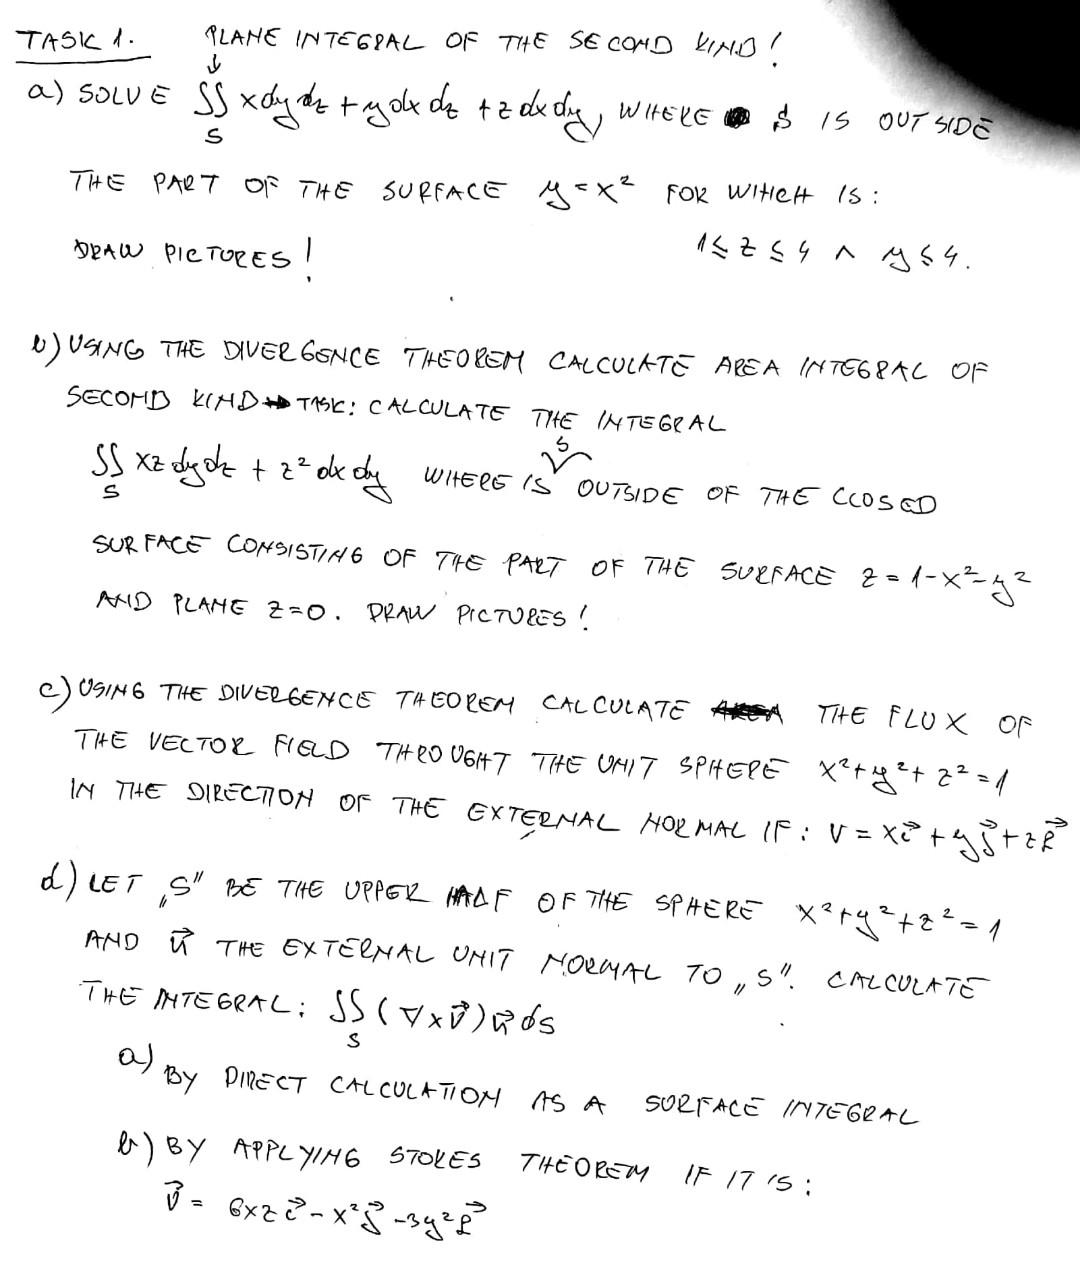 TASK 1. PLANE INTEGRAL OF THE SECOND KIND!
↓
a) SOLVE ∬ xdydz + ydxdz + zdxdy, WHERE S IS OUTSIDE
S
THE PART OF THE SURFACE y = x² FOR WHICH IS:
DRAW PICTURES! 1 ≤ z ≤ 4 ∧ y ≤ 4.
b) USING THE DIVERGENCE THEOREM CALCULATE AREA INTEGRAL OF
SECOND KIND TASK: CALCULATE THE INTEGRAL
S
∬ xz dydz + z² dx dy WHERE IS OUTSIDE OF THE CLOSED
S
SURFACE CONSISTING OF THE PART OF THE SURFACE z = 1-x²-y²
AND PLANE z=0. DRAW PICTURES!
c) USING THE DIVERGENCE THEOREM CALCULATE THE FLUX OF
THE VECTOR FIELD THROUGHT THE UNIT SPHERE x²+y²+z²=1
IN THE DIRECTION OF THE EXTERNAL NORMAL IF: V = xi⃗ + yj⃗ + zk⃗
d) LET „S" BE THE UPPER HALF OF THE SPHERE x²+y²+z²=1
AND n⃗ THE EXTERNAL UNIT NORMAL TO „S". CALCULATE
THE INTEGRAL: ∬ (∇×v⃗) n⃗ ds
S
a) BY DIRECT CALCULATION AS A SURFACE INTEGRAL
b) BY APPLYING STOKES THEOREM IF IT IS:
v⃗ = 6xz i⃗ - x² j⃗ - 3y² k⃗